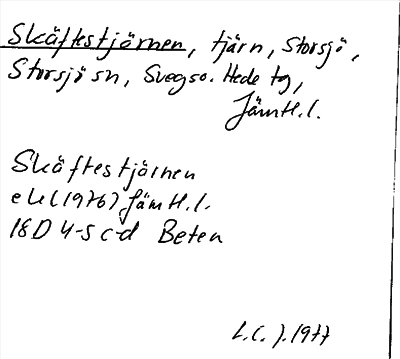 Skäftestjärnen, tjärn, Storsjö,
Storsjö sn, Svegs o. Hede tg,
Jämtl.l.
Skäftestjärnen
ek (1976) Jämtl.l.
18D 4-5 c-d Beten
L.C.J. 1977